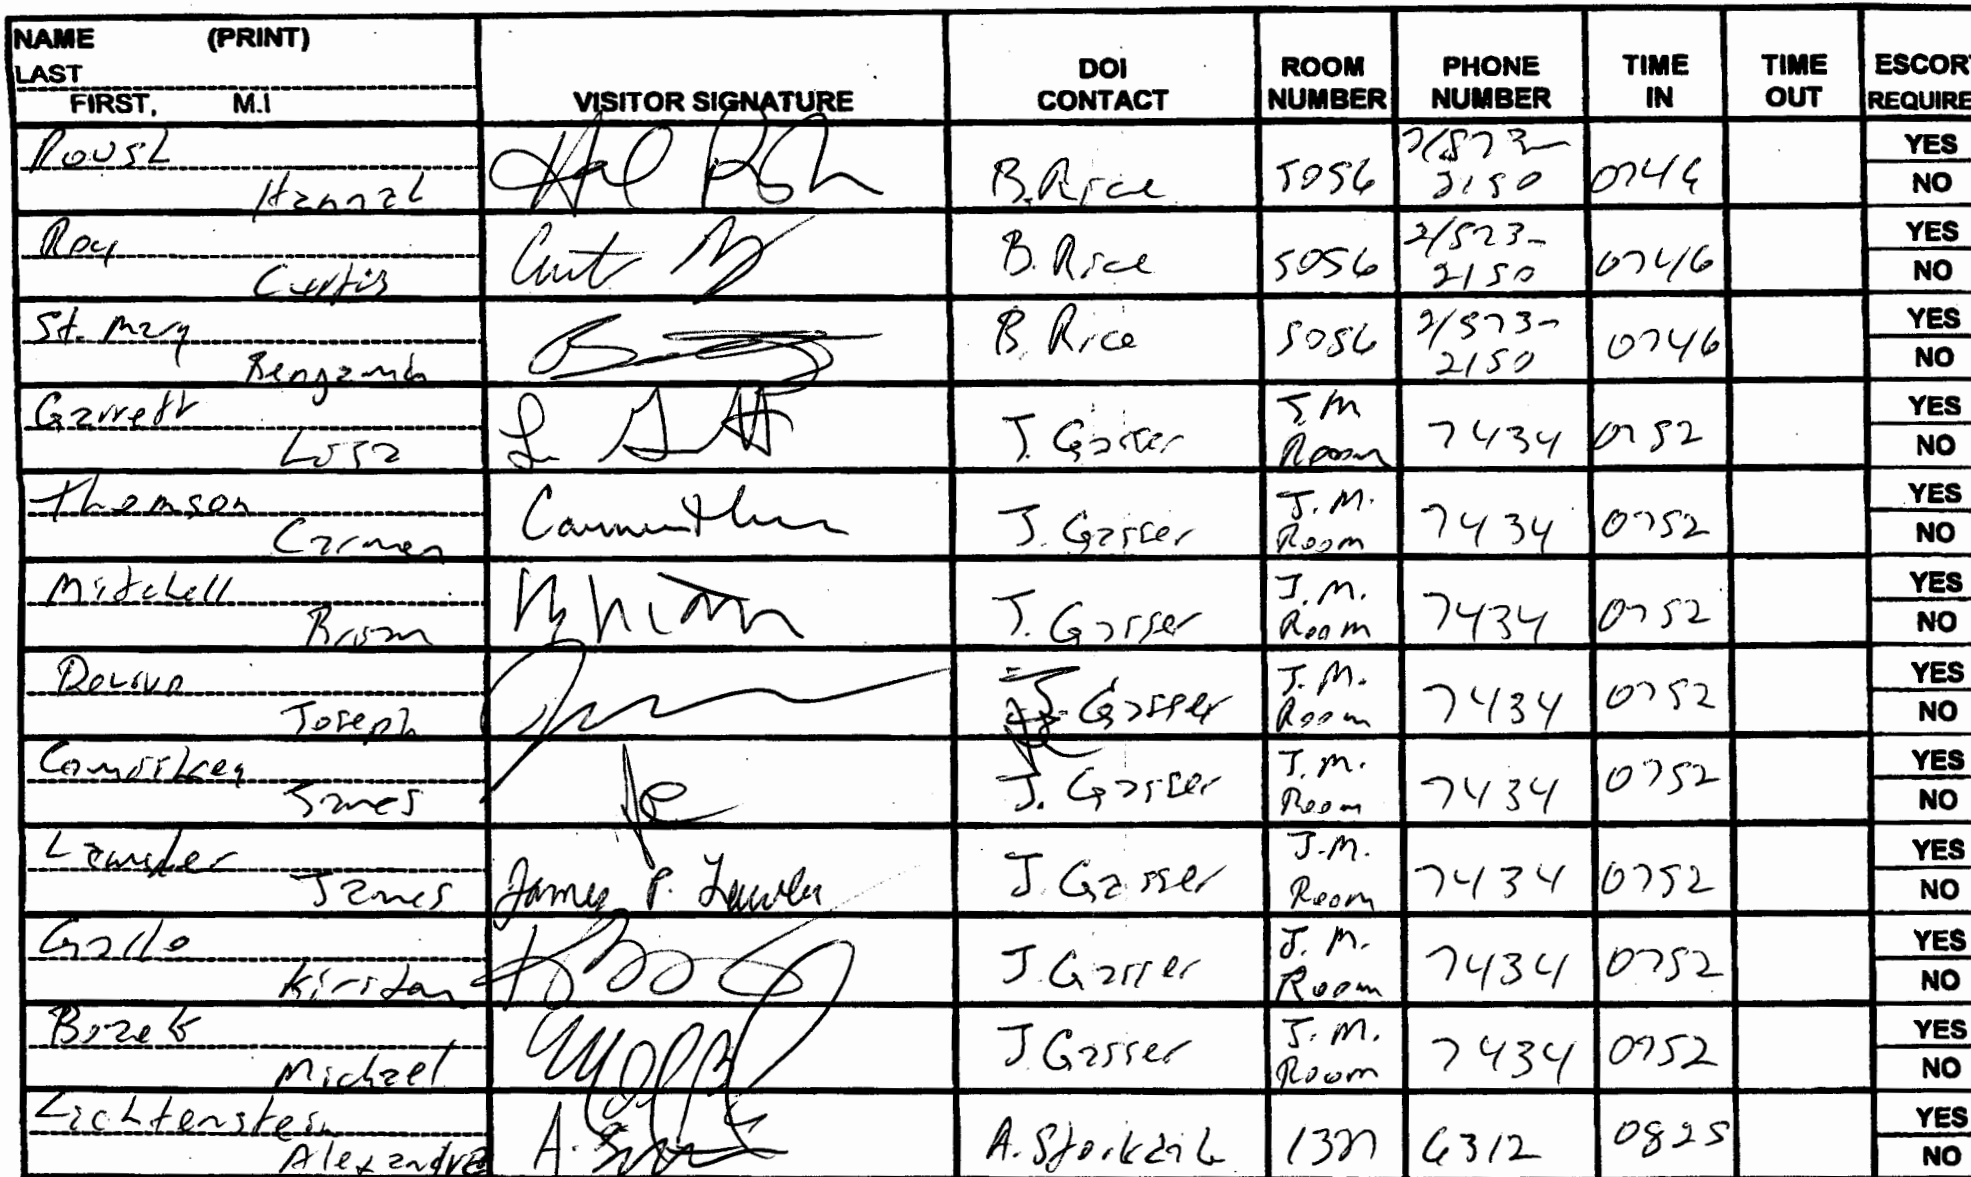 NAME (PRINT)
LAST
FIRST, M.I
VISITOR SIGNATURE
DOI CONTACT
ROOM NUMBER
PHONE NUMBER
TIME IN
TIME OUT
ESCORT REQUIRE
Roush
Hannah
B. Rice 5056 2/573-2150 0746 YES NO
Roy
Curtis
B. Rice 5056 2/573-2150 0746 YES NO
St. Mary
Bengamin
B. Rice 5056 2/573-2150 0746 YES NO
Garrett
Lisa
J. Gasser J.M Room 7434 0752 YES NO
Thomson
Carmen
J. Gasser J.M. Room 7434 0752 YES NO
Mitchell
Brian
J. Gasser J.M. Room 7434 0752 YES NO
Joseph
J. Gasser J.M. Room 7434 0752 YES NO
Comiskey
James
J. Gasser J.M. Room 7434 0752 YES NO
Lawler
James
James P. Lawler
J. Gasser J.M. Room 7434 0752 YES NO
Gallo
Kirstan
J. Gasser J.M. Room 7434 0752 YES NO
Bozek
Michael
J. Gasser J.M. Room 7434 0752 YES NO
Lichtenstein
Alexandra
A. 6312 0825 YES NO